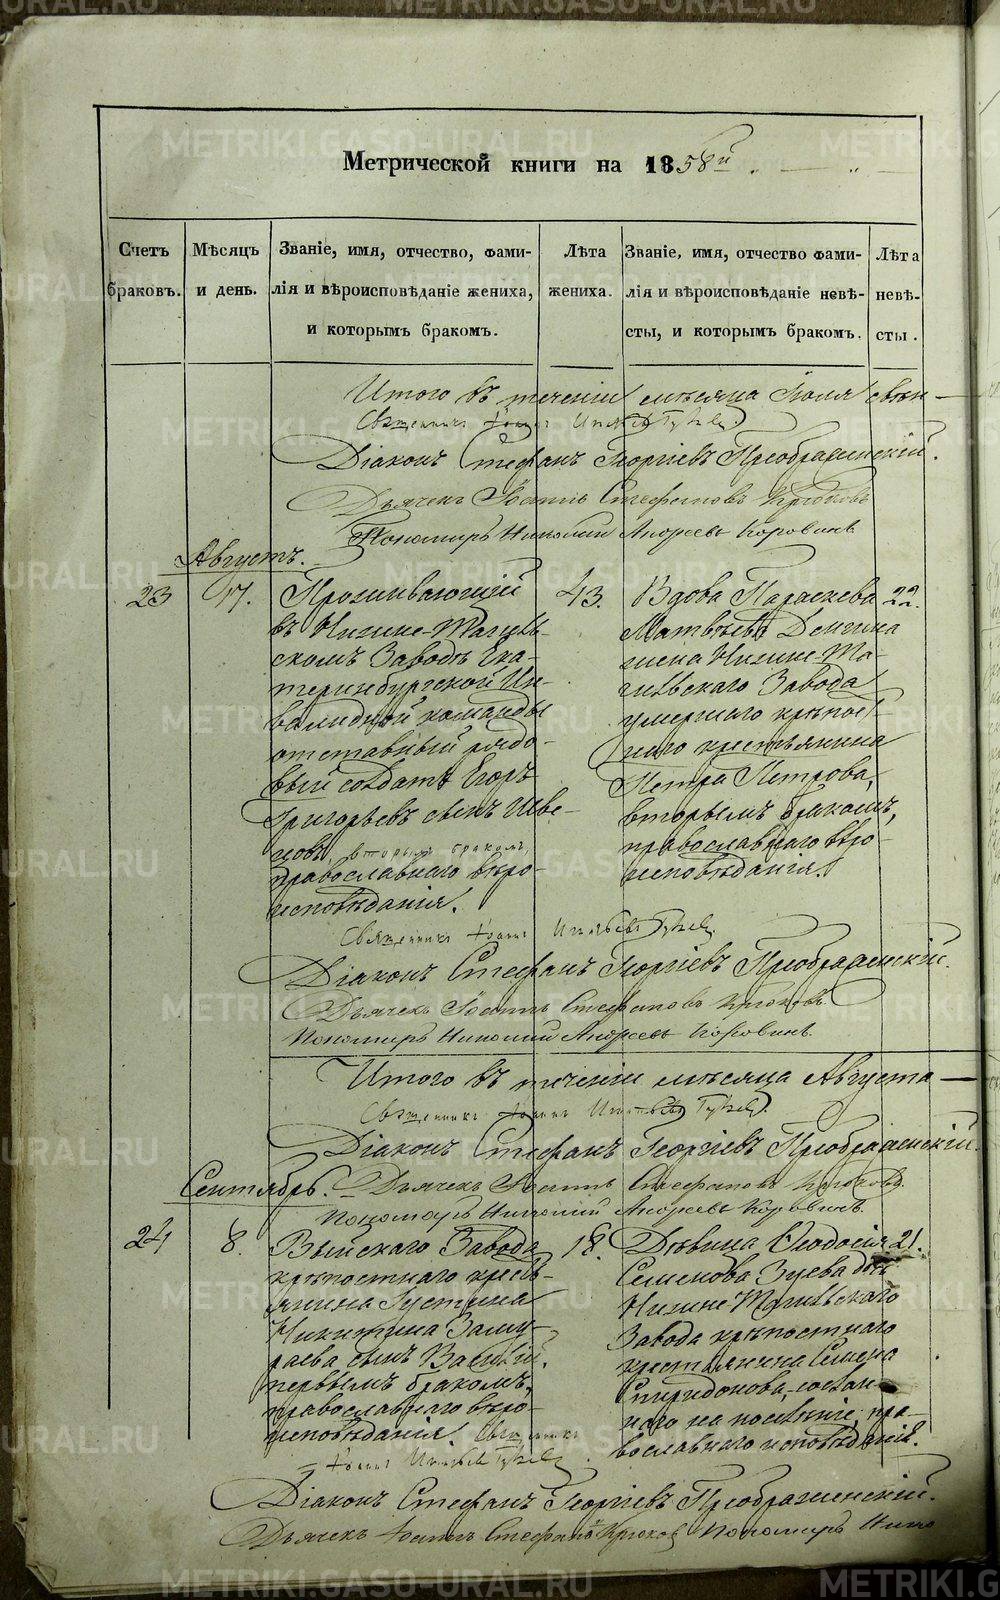 METRIKI.GASO-URAL.RU
Метрической книги на 1858й
Счетъ браковъ.
Мѣсяцъ и день.
Званіе, имя, отчество, фами-
лія и вѣроисповѣданіе жениха,
и которымъ бракомъ.
Лѣта жениха.
Званіе, имя, отчество фами-
лія и вѣроисповѣданіе невѣ-
сты, и которымъ бракомъ.
Лѣта невѣ-
сты.
Итого въ теченіи мѣсяца Іюля свѣн-
Священникъ Іоаннъ
Діаконъ Стефанъ Георгіевъ Преображенскій.
Дьячекъ Іоаннъ Стефановъ Крюковъ
Пономарь Николай Андреевъ Коровинъ
Августъ.
23
17.
Проживающій
въ Нижне-Тагиль-
скомъ Заводѣ Ека-
теринбургской Ин-
валидной команды
отставный рядо-
вый солдатъ Егоръ
Григорьевъ сынъ Шве-
цовъ, вторымъ бракомъ,
православнаго вѣро-
исповѣданія.
43.
Вдова Параскева
Матвѣева Демгина
жена Нижне-Та-
гильскаго Завода
умершаго крѣпост-
наго крестьянина
Петра Петрова,
вторымъ бракомъ,
православнаго вѣро-
исповѣданія.
22.
Священникъ Іоаннъ
Діаконъ Стефанъ Георгіевъ Преображенскій.
Дьячекъ Іоаннъ Стефановъ Крюковъ
Пономарь Николай Андреевъ Коровинъ.
Итого въ теченіи мѣсяца Августа
Священникъ Іоаннъ
Діаконъ Стефанъ Георгіевъ Преображенскій.
Сентябрь.
Дьячекъ Іоаннъ Стефановъ Крюковъ
Пономарь Николай Андреевъ Коровинъ.
24
8.
Выйскаго Завода
крѣпостнаго кресть-
янина Густина
Никитина Заму-
раева сынъ Василій,
первымъ бракомъ,
православнаго вѣро-
исповѣданія. Священникъ
Іоаннъ
18.
Дѣвица Ѳеодосія
Семенова Зуева дочь
Нижне Тагильскаго
Завода крѣпостнаго
крестьянина Семена
Спиридонова, сослан-
наго на поселеніе, пра-
вославнаго исповѣданія.
21.
Діаконъ Стефанъ Георгіевъ Преображенскій.
Дьячекъ Іоаннъ Стефановъ Крюковъ Пономарь Нико